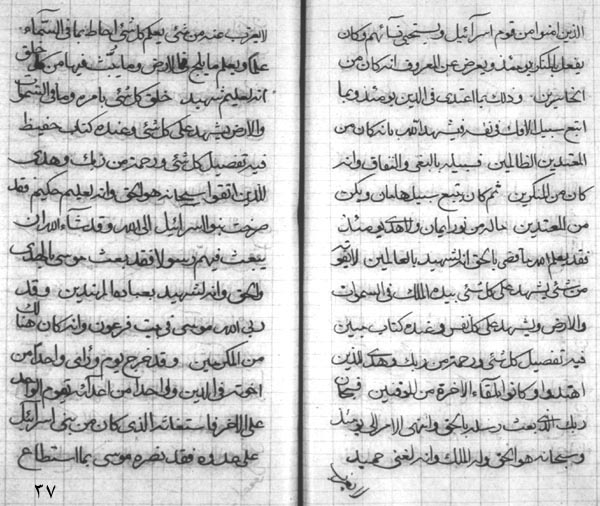 الذين امنوا من قوم اسرآئيل ويستحيى نسآئهم وكان
يفعل بالمنكر يومئذ ويعرض عن المعروف انه كان من
الخاسرين وذلك بما اعتدى فى الدين يومئذ وبما
اتبع سبيل الافك فى نفسه ويشهد الله بانه كان من
المعتدين الظالمين فسبيله بالبغى والنفاق وانه
كان من المنكرين ثم كان يتبع سبيل هامان ويكن
من المعتدين ماله من نور ايمان ولا هدى يومئذ
فقد يعلم الله بما قضى بالحق انه لشهيد بالعالمين لا يفوته
من شئ يشهد على كل شئ بيده الملك فى السموات
والارض ويشهد على كل نفس وعنده كتاب مبين
فيه تفصيل كل شئ ورحمة من ربك وهدى للذين
اهتدوا وكانوا بلقاء الاخرة من الموقنين فسبحان
ربك الذى بعث رسله بالحق وانتهى الامر الى يومئذ
وسبحانه هو الحق وله الملك وانه لغنى حميد
لا يعزب عنه من شئ يعلم كل شئ احاط بما فى السمآء
علما ويعلم ما يلج فى الارض وما يبث فيها من كل خلق
انه لعليم شهيد خلق كل شئ بامره وما فى السموات
والارض يشهد على كل شئ وعنده كتاب حفيظ
فيه تفصيل كل شئ ورحمة من ربك وهدى
للذين اتقوا سبحانه هو الحق وانه لعليم حكيم فقد
صرخت بنو اسرآئيل الى الله وقد شاء الله ان
يبعث فيهم رسولا فقد بعث موسى بالهدى
والحق وانه لشهيد بعباده المهتدين وقد
ربى الله موسى فى بيت فرعون وانه كان هنالك
من المكرمين وقد خرج يوم وراى واحدا من
اخوته فى الدين ولى واحدا من اعدآئه تقوم الواحد
على الاخر فاستغاثه الذى كان من بنى اسرآئيل
على عدوه فقد نصره موسى بما استطاع
٣٧